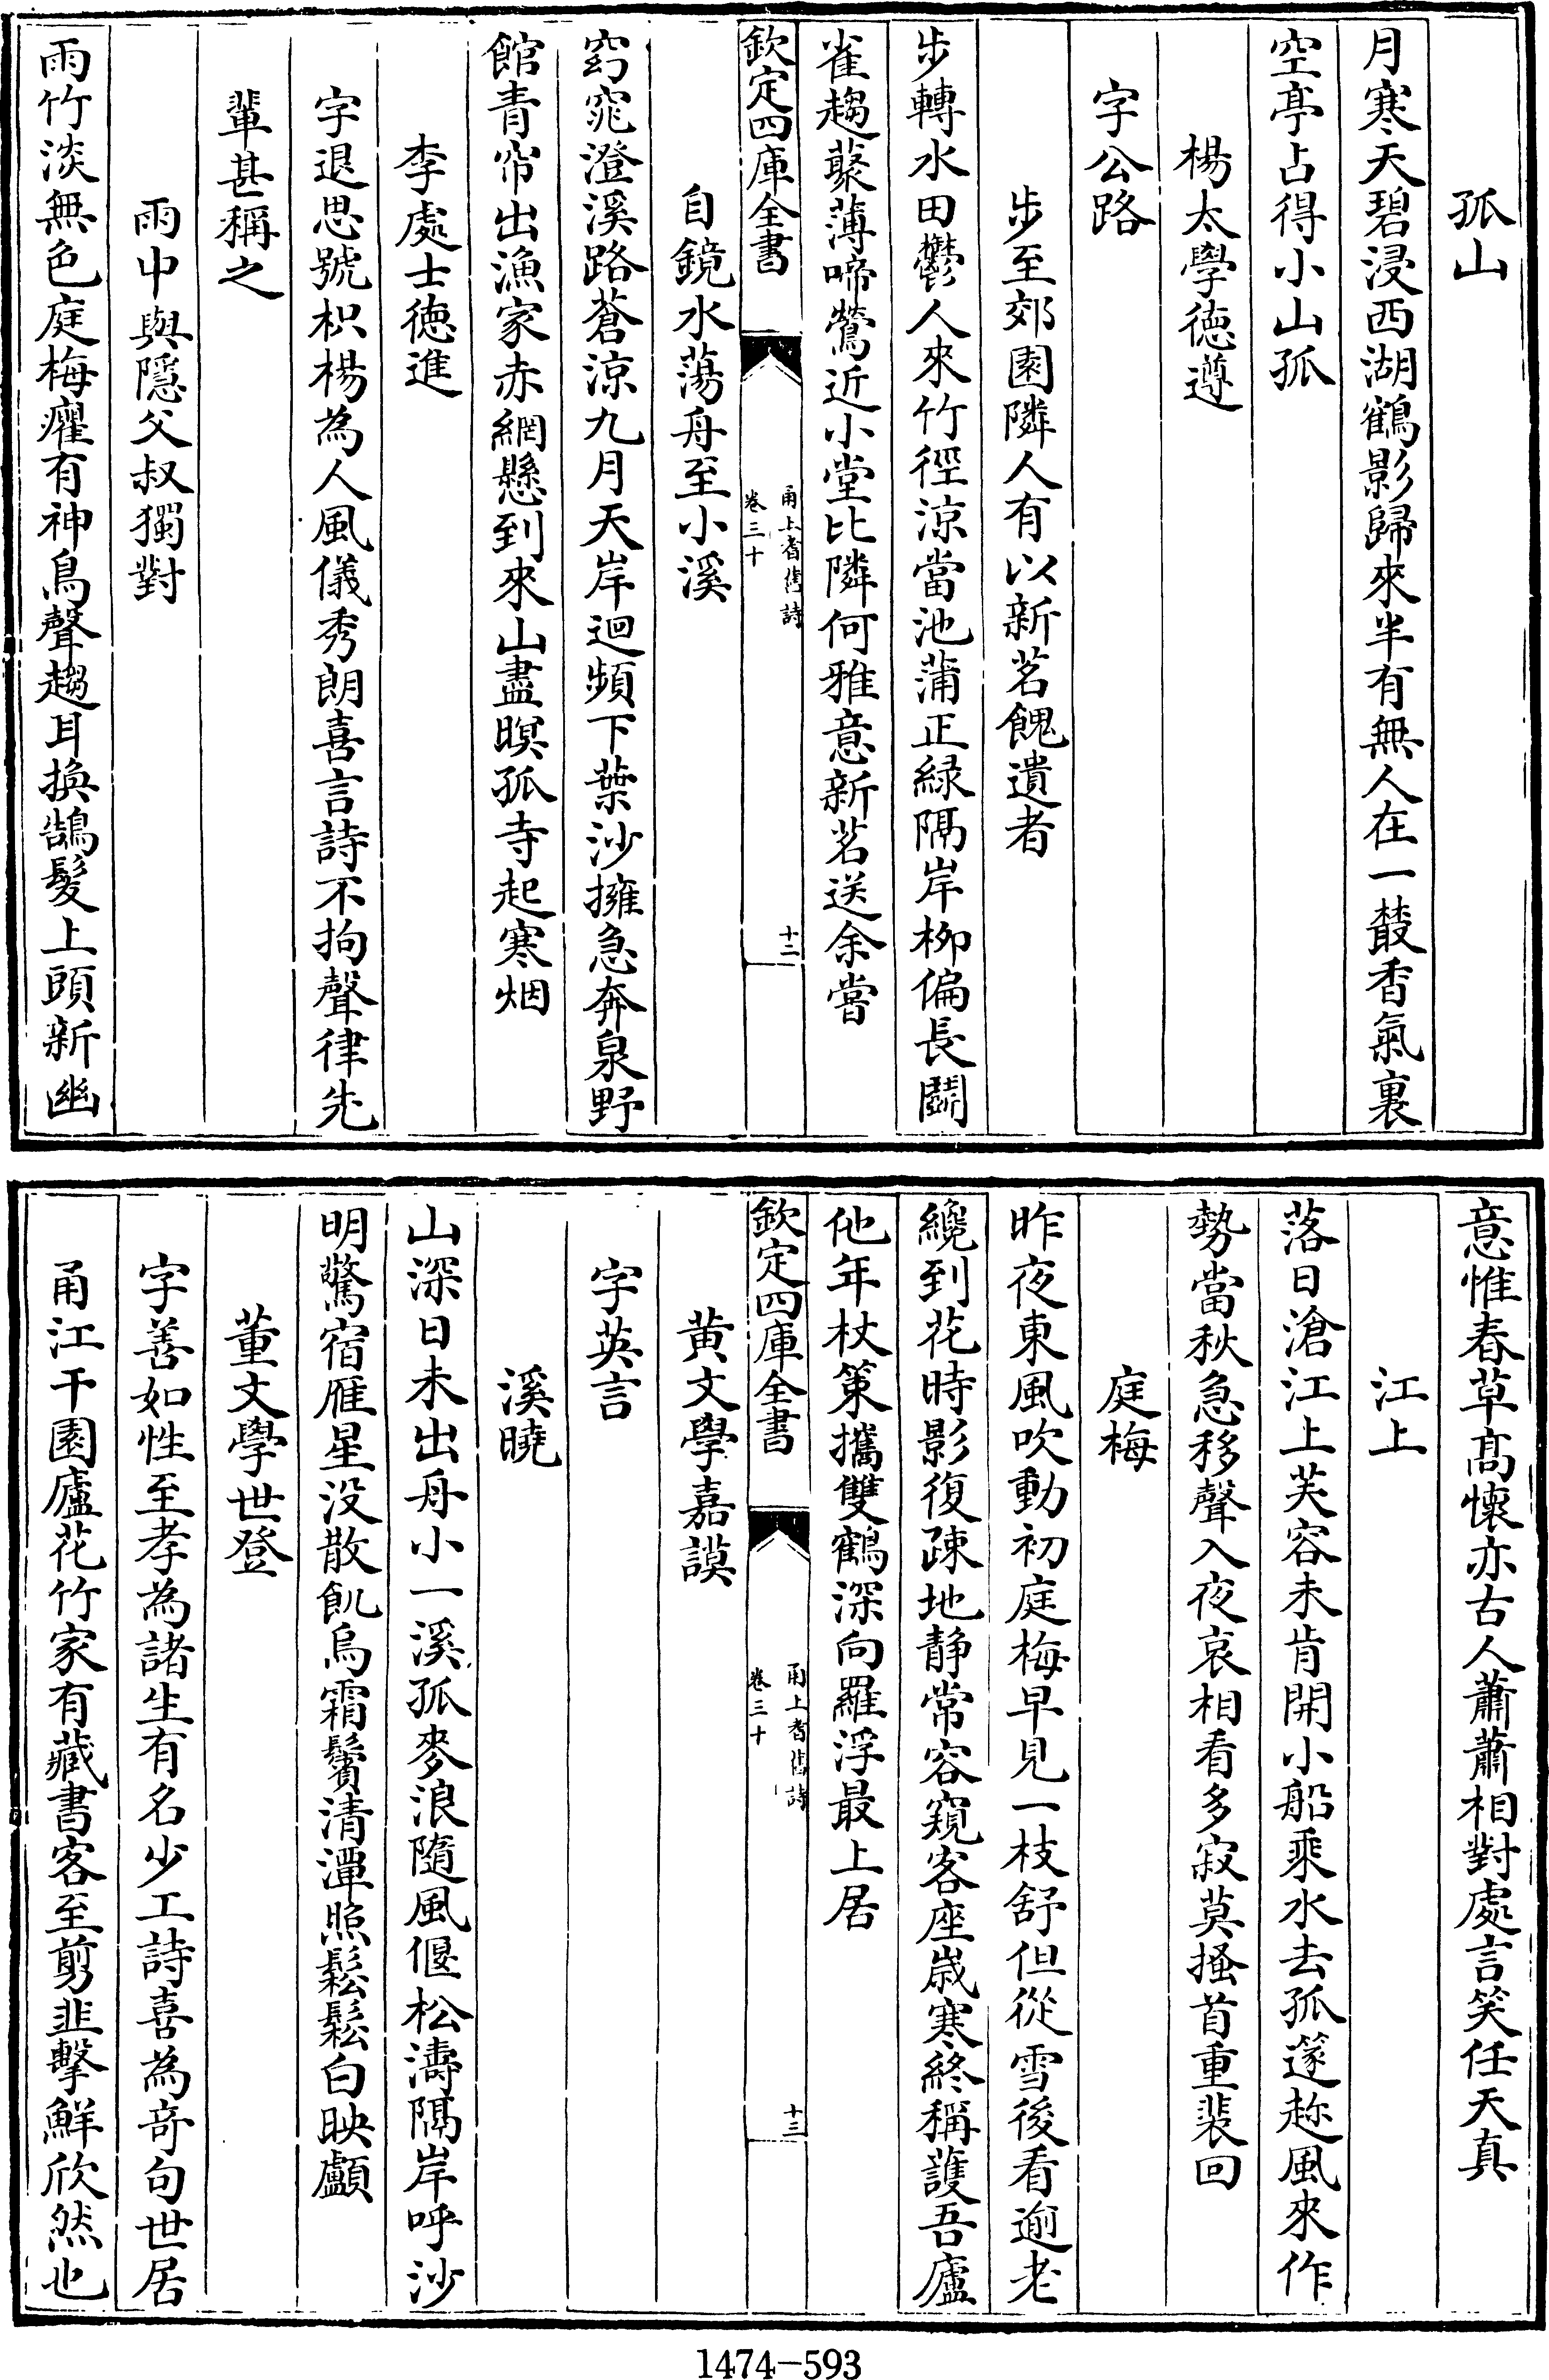 孤山
月寒天碧浸西湖鶴影歸來半有無人在一䕺香氣裏
空亭占得小山孤
楊太學徳遵
字公路
步至郊園隣人有以新茗餽遺者
步轉水田鬱人來竹徑涼當池蒲正緑隔岸栁偏長鬬
雀趨藂薄啼鶯近小堂比隣何雅意新茗送余嘗
欽定四庫全書
甬上耆舊詩
卷三十
十二
自鏡水蕩舟至小溪
窈窕澄溪路蒼涼九月天岸迴頻下葉沙擁急奔泉野
館青帘出漁家赤網懸到來山盡暝孤寺起寒烟
李處士徳進
字退思號枳楊為人風儀秀朗喜言詩不拘聲律先
輩甚稱之
雨中與隱父叔獨對
雨竹淡無色庭梅癯有神鳥聲趨耳換鵠髮上頭新幽
意惟春草髙懐亦古人蕭蕭相對處言笑任天真
江上
落日滄江上芙容未肯開小船乘水去孤邃趂風來作
勢當秋急移聲入夜哀相看多寂莫搔首重裴回
庭梅
昨夜東風吹動初庭梅早見一枝舒但從雪後看逾老
纔到花時影復疎地静常容窺客座嵗寒終稱䕶吾廬
他年杖策攜雙鶴深向羅浮最上居
欽定四庫全書
甬上耆舊詩
卷三十
十三
黄文學嘉謨
字英言
溪曉
山深日未出舟小一溪孤麥浪隨風偃松濤隔岸呼沙
明驚宿雁星没散飢烏霜鬢清潭照鬆鬆白映顱
董文學世登
字善如性至孝為諸生有名少工詩喜為奇句世居
甬江干園廬花竹家有藏書客至剪韭擊鮮欣然也
1474-593